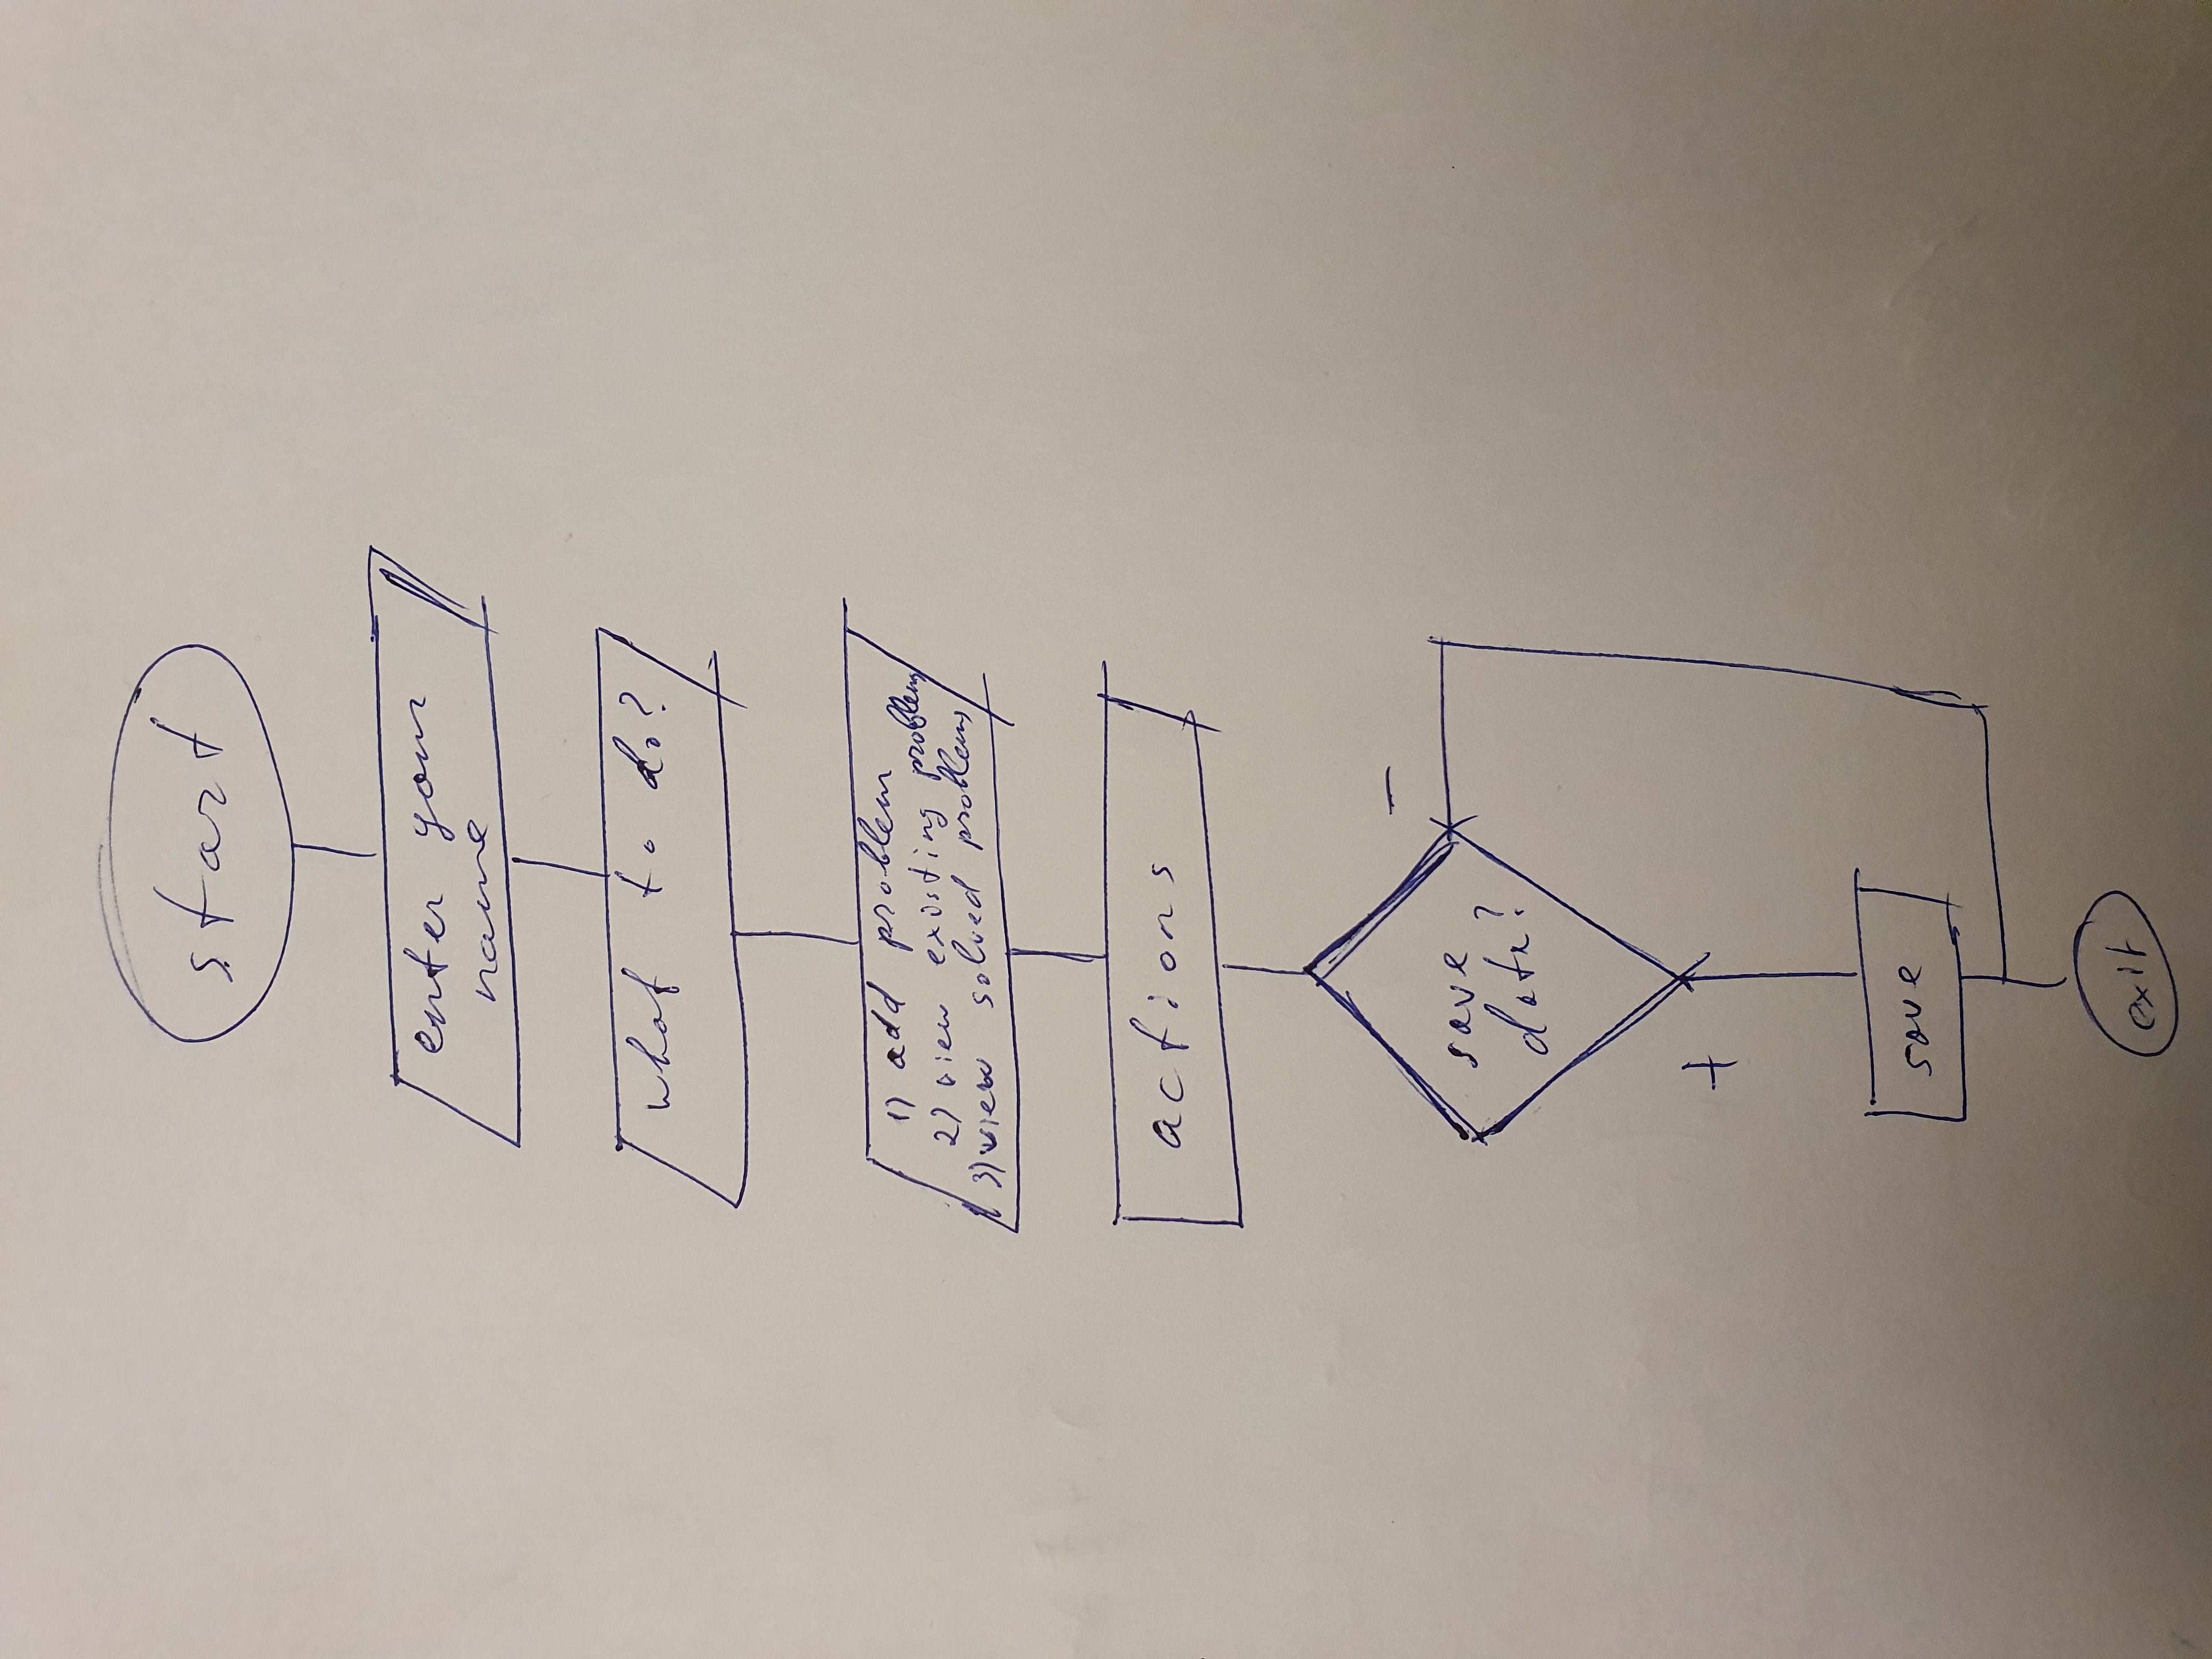 start
enter your
name
what to do?
1) add problem
2) view existing problems
3) view solved problems
actions
-
save
data?
+
save
exit